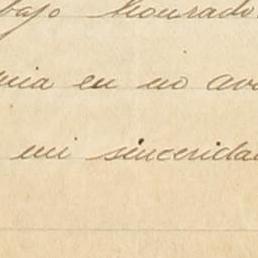 bajo honrado
nia en no ava
mi sinceridad